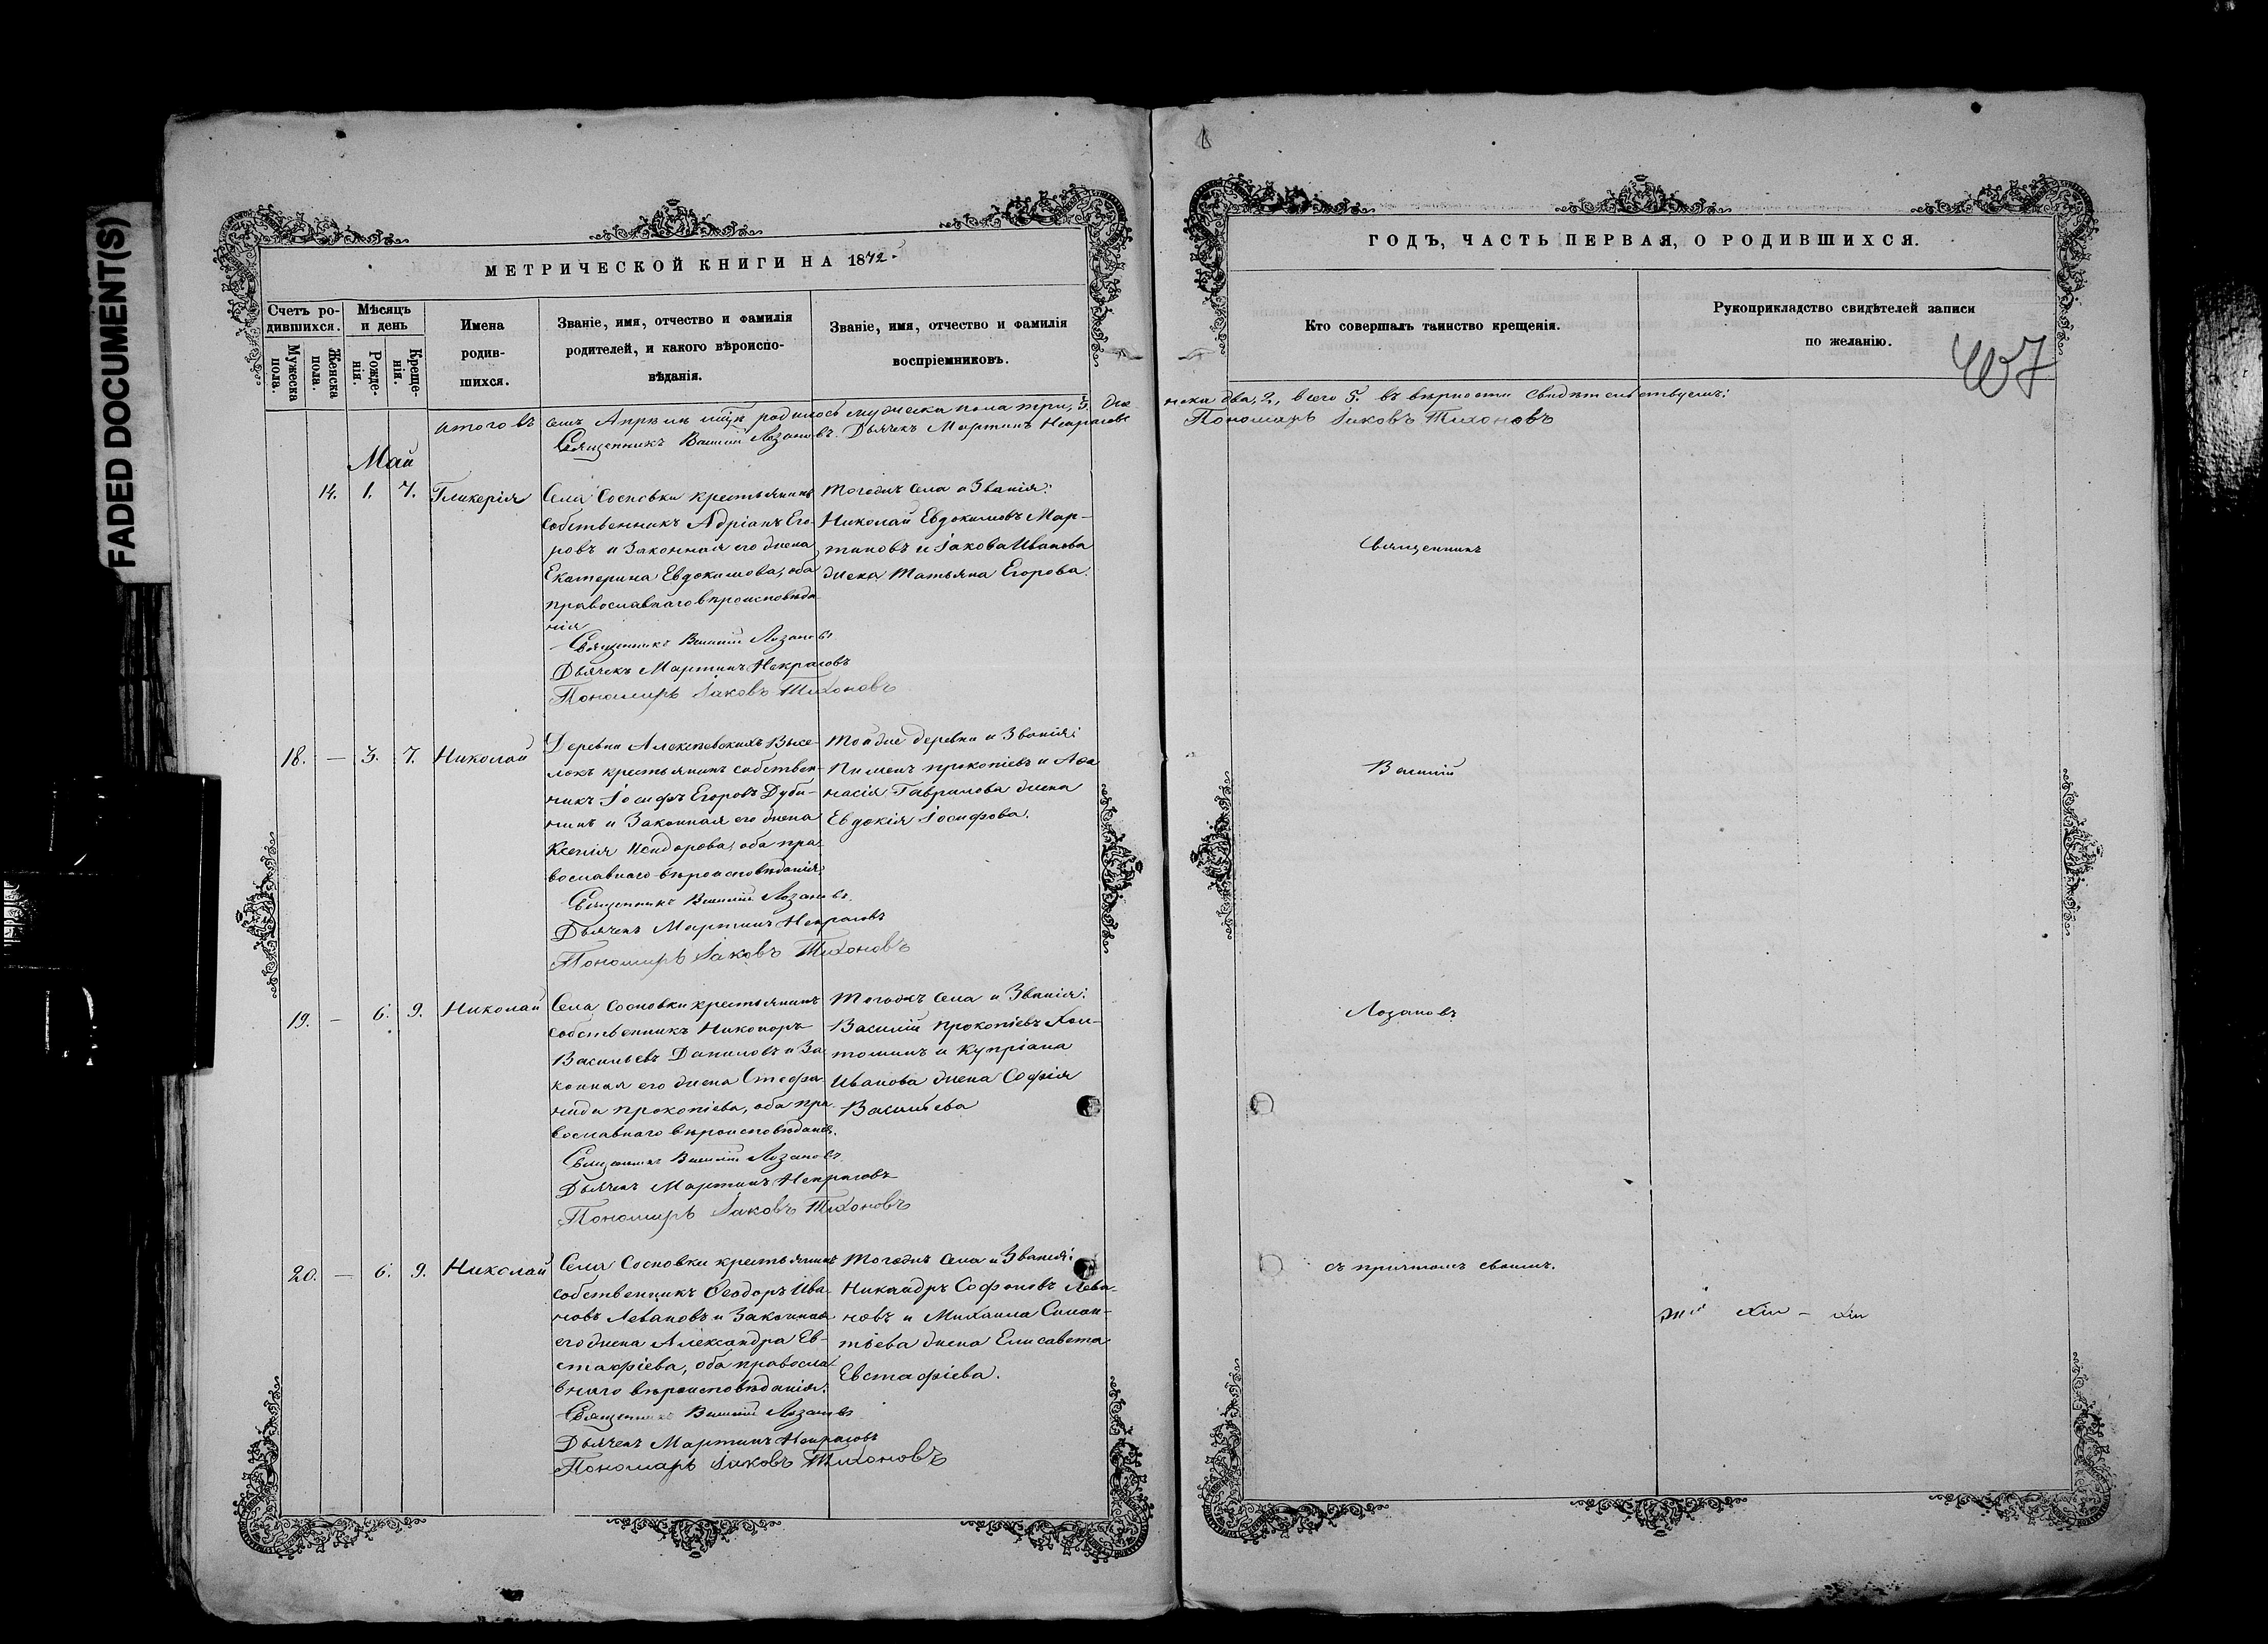 FADED DOCUMENT(S)
МЕТРИЧЕСКОЙ КНИГИ НА 1872.
Счетъ ро-
дившихся.
Мужеска
пола.
Женска
пола.
Мѣсяцъ
и день
Рожде-
нія.
Креще-
нія.
Имена
родив-
шихся.
Званіе, имя, отчество и фамилія
родителей, и какого вѣроиспо-
вѣданія.
Званіе, имя, отчество и фамилія
воспріемниковъ.
итого въ семъ Апрѣлѣ мцѣ родилось мужеска пола три, 3. Же
Священникъ Василій Лозановъ. Дьячекъ Мартинъ Некрасовъ
Май
14. 1. 7. Гликерія
Села Сосновки крестьянинъ
собственникъ Адріанъ Его-
ровъ и законная его жена
Екатерина Евдокимова, оба
православнаго вѣроисповѣда
нія
Священникъ Василій Лозановъ
Дьячекъ Мартинъ Некрасовъ
Пономарь Іаковъ Тихоновъ
Тогожъ села и званія:
Николай Евдокимовъ Мар-
тиновъ и Іакова Иванова
жена Татьяна Егорова.
18. — 3. 7. Николай
Деревни Алексѣевскихъ Высе-
локъ крестьянинъ собствен-
никъ Іосифъ Егоровъ Дуби-
нинъ и законная его жена
Ксенія Исидорова, оба пра
вославнаго вѣроисповѣданія:
Священникъ Василій Лозановъ.
Дьячекъ Мартинъ Некрасовъ
Пономарь Іаковъ Тихоновъ
Тойже деревни и званія:
Пименъ Прокопіевъ и Аѳа
насія Гаврилова жена
Евдокія Іосифова.
19. — 6. 9. Николай
Села Сосновки крестьянинъ
собственникъ Никоноръ
Васильевъ Даниловъ и за
конная его жена Стефа-
нида Прокопіева, оба пра-
вославнаго вѣроисповѣданія.
Священникъ Василій Лозановъ
Дьячекъ Мартинъ Некрасовъ
Пономарь Іаковъ Тихоновъ
Тогожъ села и званія:
Василій Прокопіевъ Хол-
томинъ и Купріана
Иванова жена Софія
Васильева
20. — 6. 9. Николай
Села Сосновки крестьянинъ
собственникъ Ѳеодоръ Ива-
новъ Левановъ и законная
его жена Александра Ев-
стафіева, оба правосла
внаго вѣроисповѣданія:
Священникъ Василій Лозановъ
Дьячекъ Мартинъ Некрасовъ
Пономарь Іаковъ Тихоновъ
Тогожъ села и званія:
Никандръ Софоновъ Лева-
новъ и Михаила Силан-
тіева жена Елисавета
Евстафіева.
ГОДЪ, ЧАСТЬ ПЕРВАЯ, О РОДИВШИХСЯ.
Кто совершалъ таинство крещенія.
Рукоприкладство свидѣтелей записи
по желанію.
407
нска два, 2, всего 5. въ вѣрности свидѣтельствуемъ:
Пономарь Іаковъ Тихоновъ
Священникъ
Василій
Лозановъ
съ причтомъ своимъ.